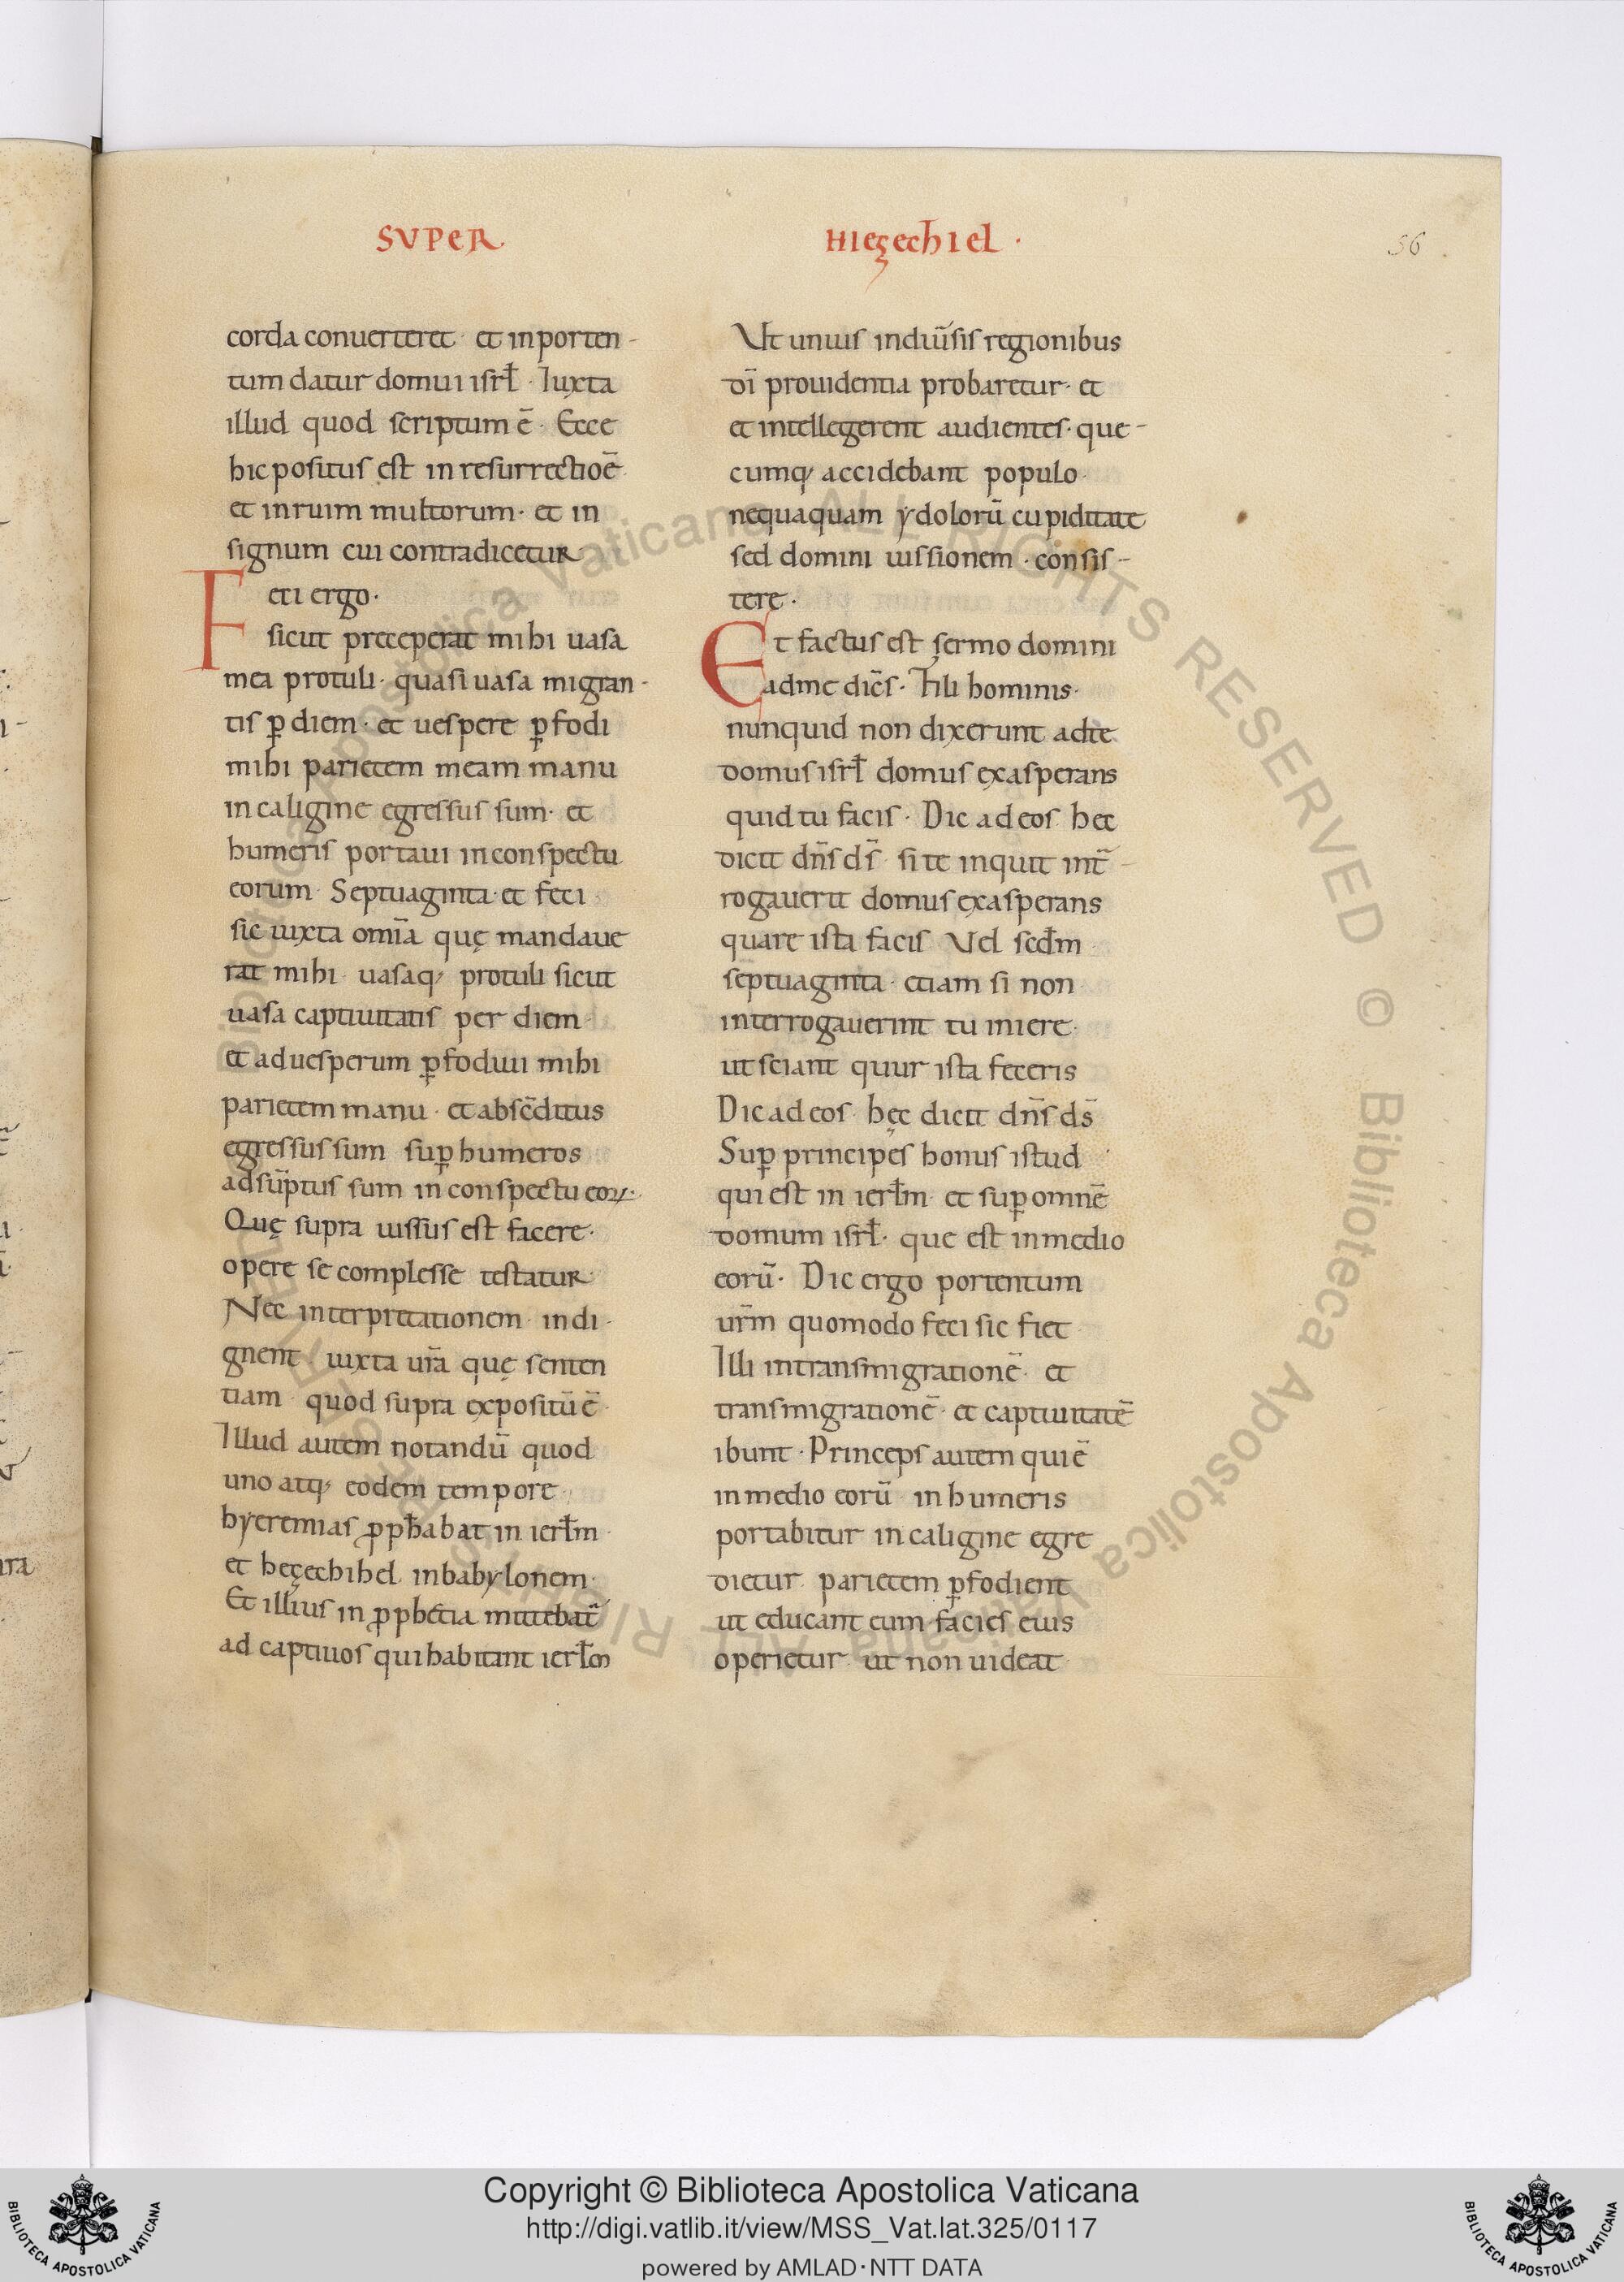 SUPER
HIEzechiel ·
56
corda conuerteret · et inporten-
tum datur domui isrł · Iuxta
illud quod scriptum ē · Ecce
hic positus est in resurrectioē
et inruim multorum · et in
signum cui contradicetur
Feci ergo ·
sicut preceperat mihi uasa
mea protuli · quasi uasa migran-
tis ꝑ diem · et uespere ꝑfodi
mihi parietem meam manu
in caligine egressus sum · et
humeris portaui inconspectu
eorum · Septuaginta · et feci
sic iuxta omīa quę mandaue
rat mihi uasaq; protuli sicut
uasa captiuitatis per diem
et aduesperum ꝑfodiui mihi
parietem manu · et absc̄ditus
egressus sum suꝑ humeros
adsūptus sum in conspectu eoꝝ ·
Quę supra iussus est facere ·
opere se complesse testatur
Nec interpretationem indi-
gnent iuxta ur̄a quę senten
tiam quod supra expositū ē
Illud autem notandū quod
uno atq; eodem tempore
hyeremias ꝓpħabat in ierłm
et hęzechihel inbabylonem ·
Et illius in ꝓphetia mittebat̄
ad captiuos qui habitant ierłm
Ut unius indiūsis regionibus
dī prouidentia probaretur · et
et intellegerent audientes · que-
cumq; accidebant populo
nequaquam ydolorū cupiditate
sed domini iussionem · consis-
tere ·
Et factus est sermo domini
adme dic̄s · Fili hominis ·
nunquid non dixerunt adte
domus isrł domus exasperans
quid tu facis · Dic adeos hec
dicit dn̄s ds̄ si te inquit int̄-
rogauerit domus exasperans
quare ista facis Vel scđm
septuaginta · etiam si non
interrogauerint tu miere
ut sciant quur ista feceris
Dic adeos hęc dicit dn̄s ds̄
Suꝑ principes honus istud
qui est in ierłm et suꝑ omnē
domum isrł · que est inmedio
eorū · Dic ergo portentum
ur̄m quomodo feci sic fiet
Illi intransmigrationē · et
transmigrationē · et captiuitatē
ibunt · Princeps autem qui ē
inmedio eorū inhumeris
portabitur in caligine egre
dietur parietem ꝑfodient
ut educant eum facies eius
operietur ut non uideat
Biblioteca Apostolica Vaticana ALL RIGHTS RESERVED © Biblioteca Apostolica Vaticana ALL RIGHTS RESERVED ©
Copyright © Biblioteca Apostolica Vaticana
http://digi.vatlib.it/view/MSS_Vat.lat.325/0117
powered by AMLAD·NTT DATA
BIBLIOTECA APOSTOLICA VATICANA
BIBLIOTECA APOSTOLICA VATICANA